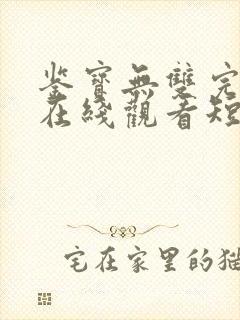 鉴寶無雙完
在綫觀看短
宅在家里的猫